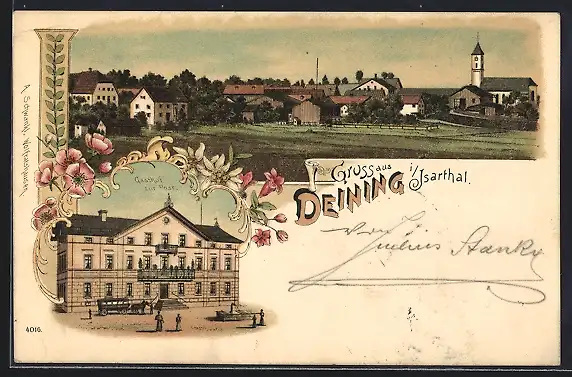 Gruss aus
DEINING i/Isarthal.
Gasthof
zur Post.
von
Julius Stanky
4016.